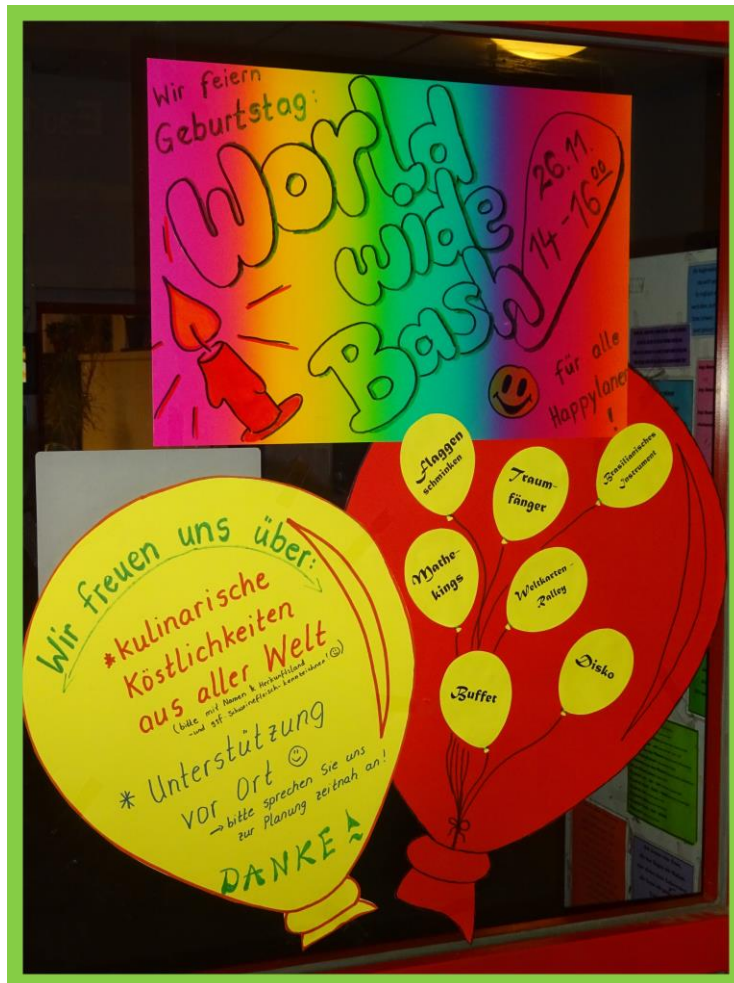 Wir feiern
Geburtstag:
World
wide
Bash
26.11.
14-16⁰⁰
für alle
Happylaner
!
Flaggen
schminken
Traum-
fänger
Brasilianisches
Instrument
Mathe-
kings
Weltkarten-
Ralley
Buffet
Disko
Wir freuen uns über:
*kulinarische
Köstlichkeiten
aus aller Welt
(bitte mit Namen & Herkunftsland
-und ggf. Schweinefleisch- kennzeichnen! ☺)
* Unterstützung
vor Ort ☺
→bitte sprechen Sie uns
zur Planung zeitnah an!
DANKE!